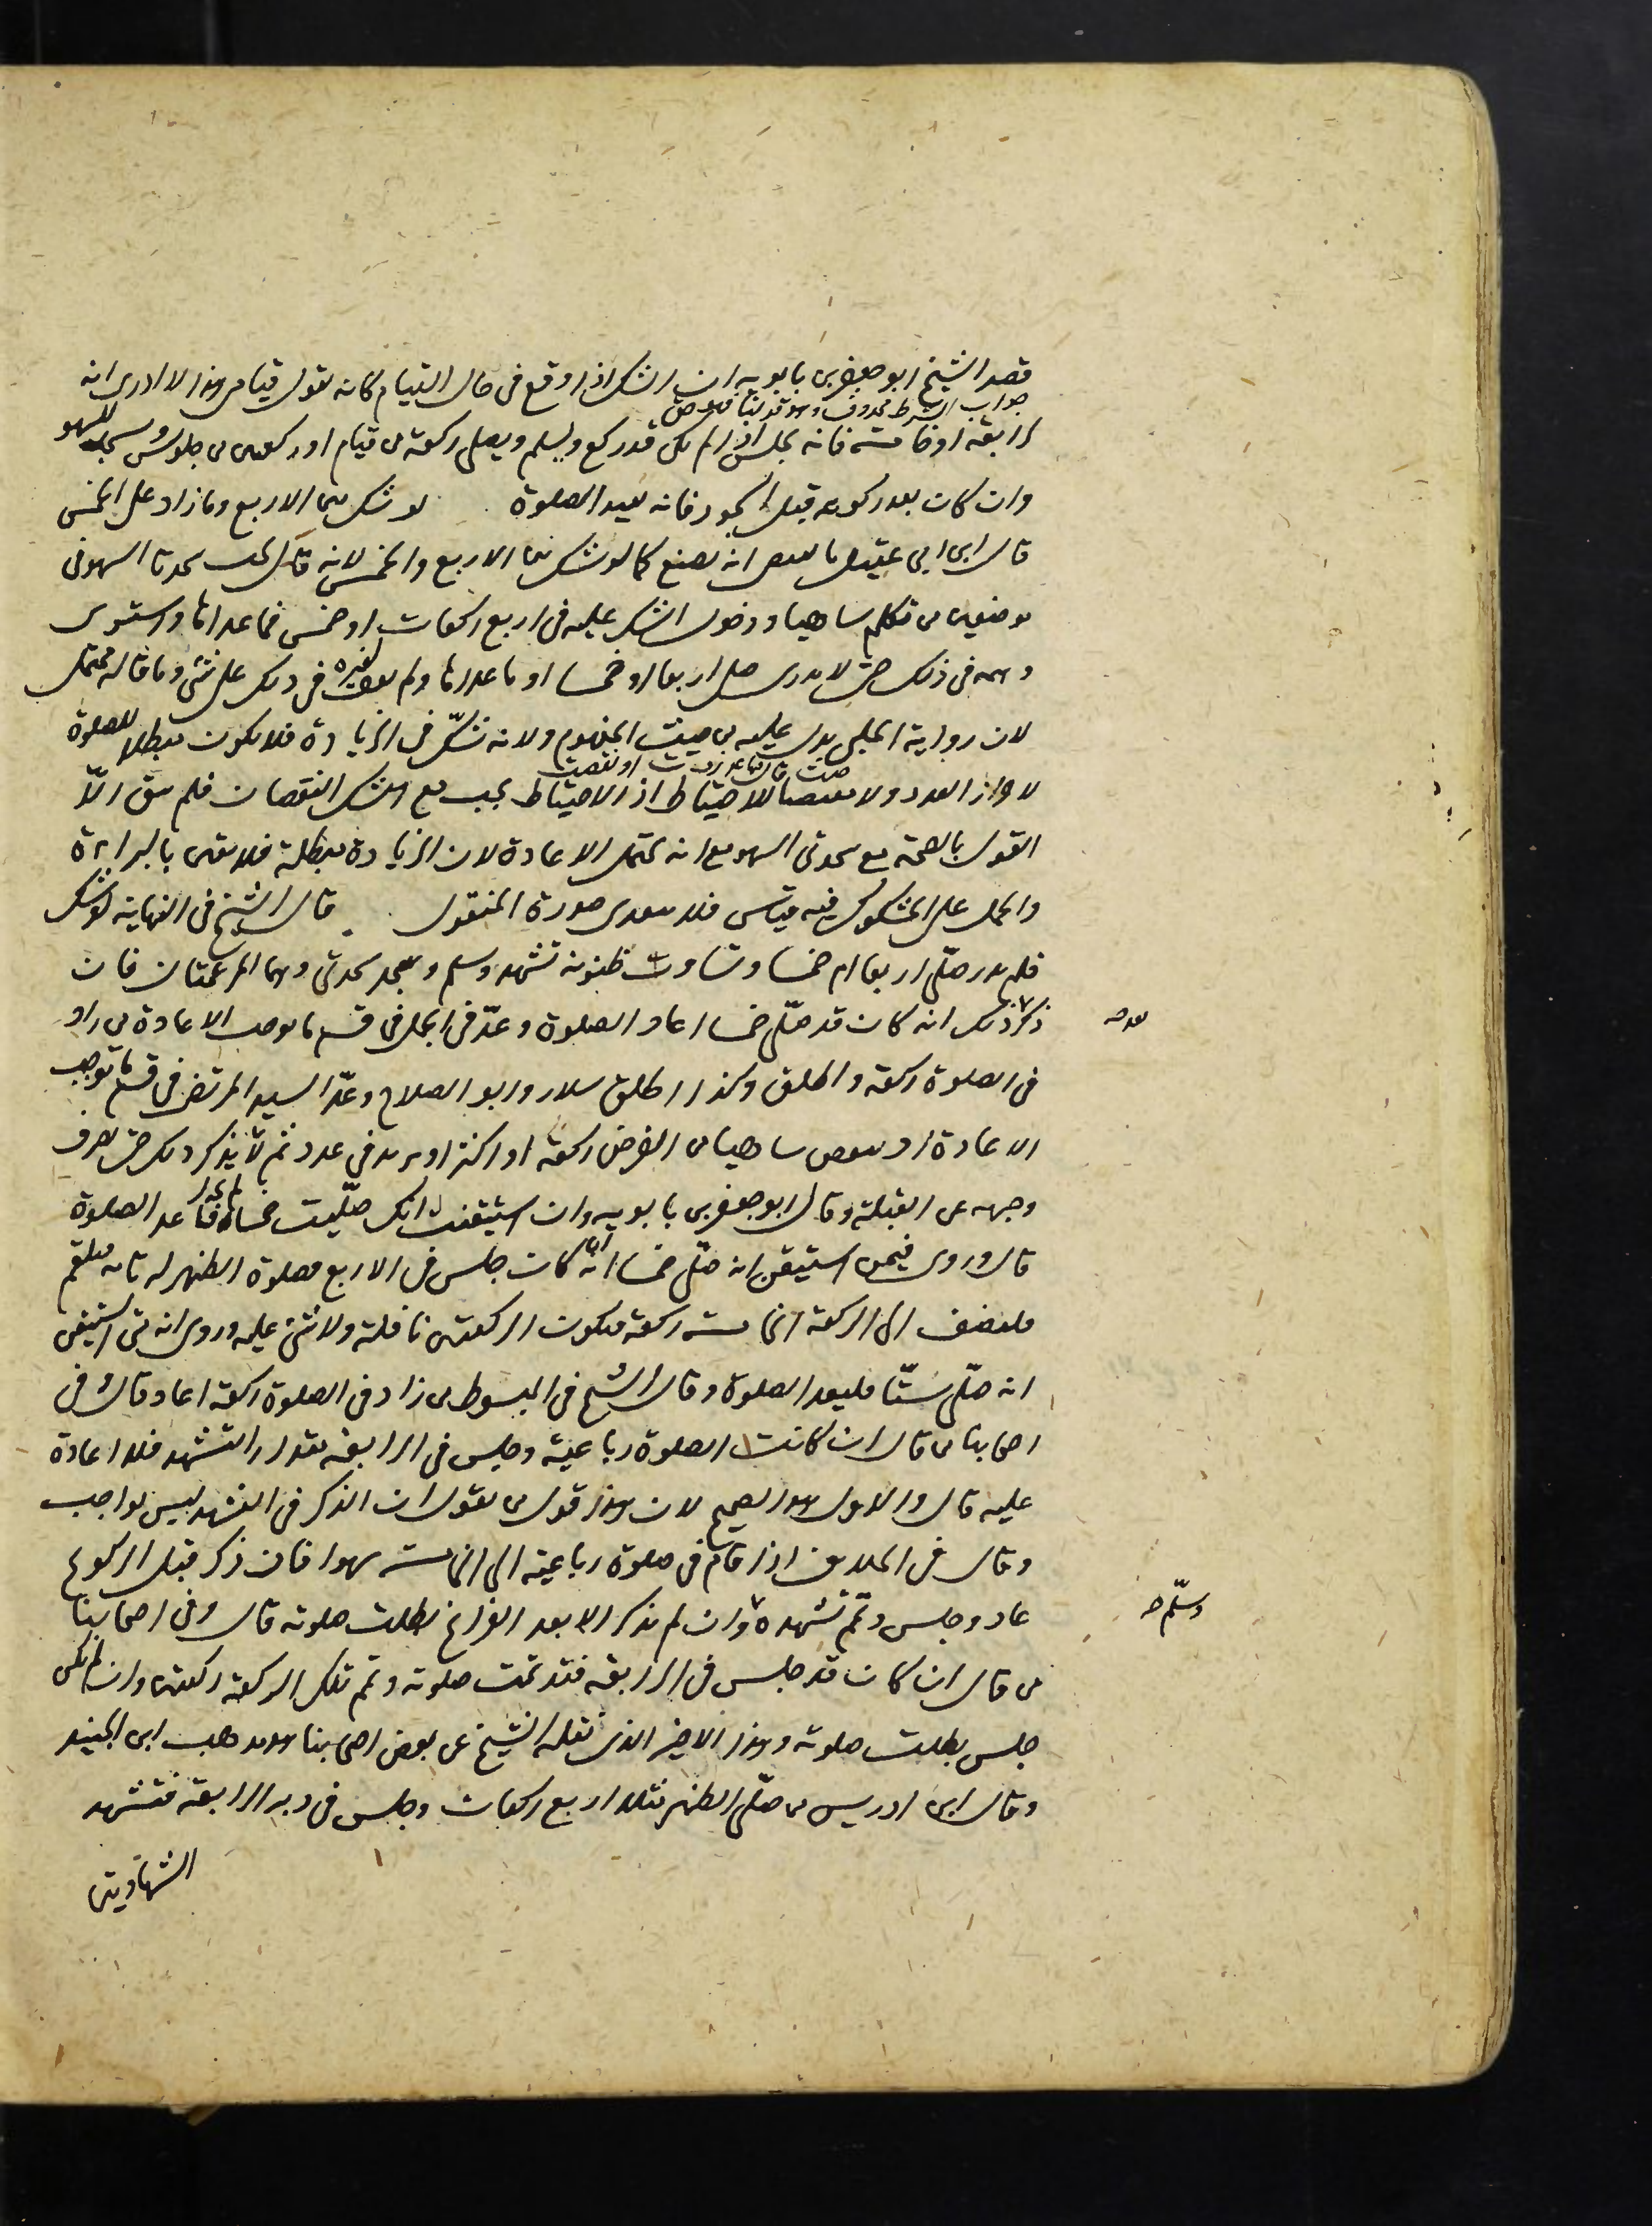 قصد الشيخ ابو جعفر بن بابويه ان الشك اذا وقع فى حال القيام كانه يقول قيامى هذا لا ادرى انه
جواب الشرط محذوف وهو قولنا
لرابعة او خامسة فانه يجلس اذا لم يكن قد ركع ويسلم ويصلى ركعة من قيام او ركعتين من جلوس ويسجد للسهو
وان كان بعد ركوعه قبل السجود فانه يعيد الصلوة لو شك بين الاربع وما زاد على الخمس
قال ابن ابى عقيل ما يقتضى انه يصنع كما لو شك بين الاربع والخمس لانه قال تجب سجدتا السهو فى
موضعين من تكلم ساهيا ودخول الشك عليه فى اربع ركعات او خمس فما عداها واستوى
وهمه فى ذلك حتى لا يدرى صلى اربعا او خمسا او ما عداها ولم نقف لغيره فى ذلك على شئ وما قاله محتمل
لان رواية الحلبى تدل عليه من حيث المفهوم ولانه شك فى الزيادة فلا يكون مبطلا للصلوة
حيث قال ما زدت او نقصت
لاحراز العدد ولا مقتضيا للاحتياط اذ الاحتياط يجب مع الشك النقصان فلم يبق الا
القول بالصحة مع سجدتى السهو مع انه يحتمل الاعادة لان الزيادة مبطلة فلا يقين بالبراءة
والحمل على المشكوك فيه قياس فلا يتعدى صورة المنقول قال الشيخ فى النهاية لو شك
فلم يدر صلى اربعا ام خمسا وتساوت ظنونه تشهد وسلم وسجد سجدتى وهما المرغمتان فان
ذكر ذلك انه كان قد صلى خمسا اعاد الصلوة وعد فى الجمل فى قسم ما يوجب الاعادة من زاد
بعد صح
فى الصلوة ركعة واطلق وكذا اطلق سلار وابو الصلاح وعد السيد المرتضى فى قسم ما توجب
الاعادة او ينقص ساهيا من الفرض ركعة او اكثر او يزيد فى عدد ثم لا يذكر ذلك حتى يصرف
وجهه عن القبلة وقال ابو جعفر بن بابويه وان استيقنت انك صليت خمسا فاعد الصلوة
قال وروى فيمن استيقن انه صلى خمسا انه كان جلس فى الاربع فصلوة الظهر له تامة فليقم
فليضف الى الركعة الخامسة ركعة فتكون الركعتين نافلة ولا شئ عليه وروى انه متى استيقن
انه صلى ستا فليعد الصلوة وقال الشيخ فى المبسوط من زاد فى الصلوة ركعة اعاد قال وفى
اصحابنا من قال ان كانت الصلوة رباعية وجلس فى الرابعة مقدار التشهد فلا اعادة
عليه قال والاول هو الصحيح لان هذا قول من يقول ان الذكر فى التشهد ليس بواجب
وقال فى الخلاف اذا قام فى صلوة رباعية الى الخامسة سهوا فان ذكر قبل الركوع
عاد وجلس وتمم تشهده وان لم يذكر الا بعد الفراغ بطلت صلوته قال وفى اصحابنا
وسلم صح
من قال ان كان قد جلس فى الرابعة فقد تمت صلوته وتمم تلك الركعة ركعتين وان لم يكن
جلس بطلت صلوته وهذا الاخير الذى نقله الشيخ عن بعض اصحابنا هو مذهب ابن الجنيد
وقال ابن ادريس من صلى الظهر مثلا اربع ركعات وجلس فى دبر الرابعة فتشهد
الشهادتين